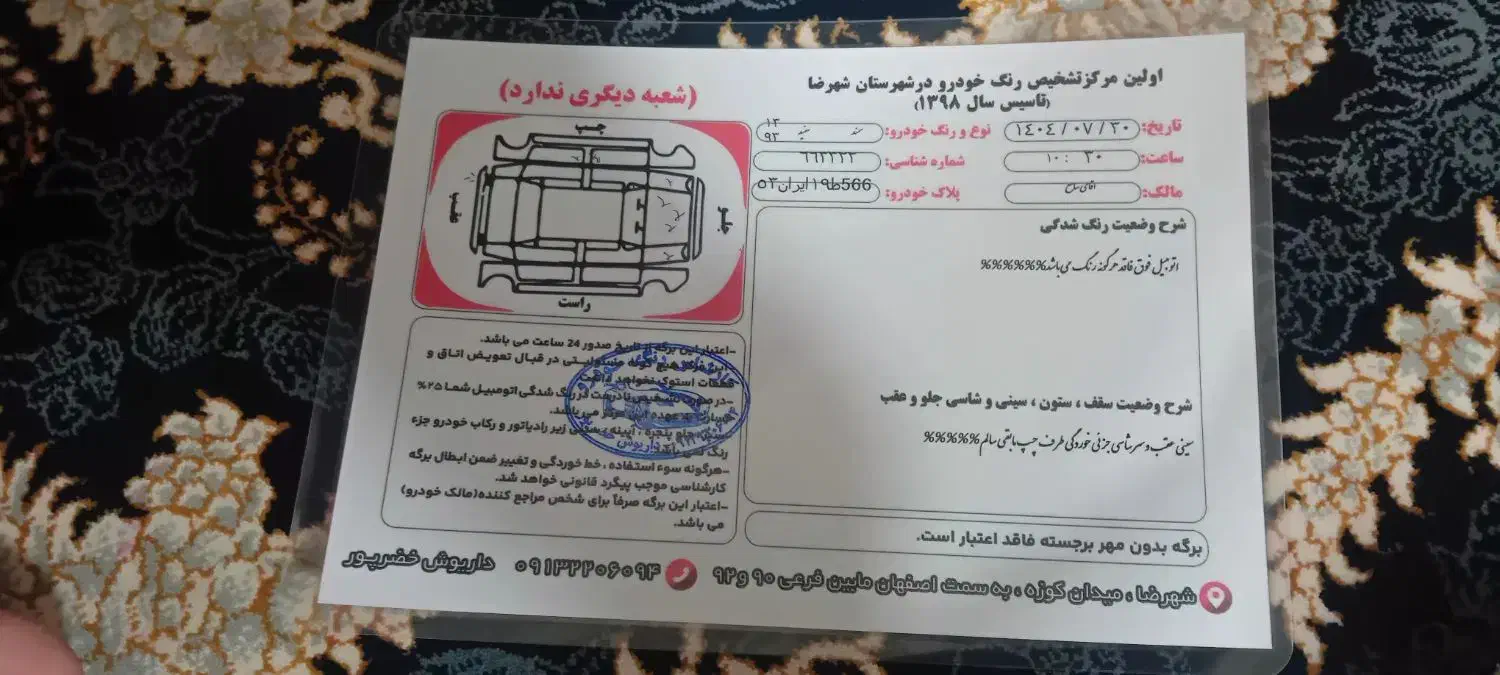 اولین مرکز تشخیص رنگ خودرو در شهرستان شهرضا
(تاسیس سال ۱۳۹۸)
تاریخ: ۱۴۰۴/۰۷/۳۰
نوع و رنگ خودرو: سمند سفید ۱۳۹۳
ساعت: ۱۰:۳۰
شماره شناسی: ۶۶۲۲۲۲
مالک: آقای
پلاک خودرو: 566ط۱۹ایران۵۳
شرح وضعیت رنگ شدگی
اتومبیل فوق فاقد هرگونه رنگ می باشد%%%%%%
شرح وضعیت سقف ، ستون ، سینی و شاسی جلو و عقب
سینی عقب و سرشاسی جزئی خوردگی طرف چپ مابقی سالم%%%%%
برگه بدون مهر برجسته فاقد اعتبار است.
(شعبه دیگری ندارد)
چپ
عقب
جلو
راست
-اعتبار این برگه از تاریخ صدور 24 ساعت می باشد.
-این مرکز هیچ گونه مسئولیتی در قبال تعویض اتاق و
قطعات استوک نخواهد داشت
-در صورت تشخیص نادرست در رنگ شدگی اتومبیل شما ۲۵%
خسارت به عهده این مرکز می باشد.
جلو پنجره ، آیینه ، سینی زیر رادیاتور و رکاب خودرو جزء
رنگ نمی باشد.
-هرگونه سوء استفاده ، خط خوردگی و تغییر ضمن ابطال برگه
کارشناسی موجب پیگرد قانونی خواهد شد.
-اعتبار این برگه صرفاً برای شخص مراجع کننده(مالک خودرو)
می باشد.
شهرضا ، میدان کوزه ، به سمت اصفهان مابین فرعی ۹۰ و ۹۲
۰۹۱۳۲۲۰۶۰۹۴ داریوش خضرپور